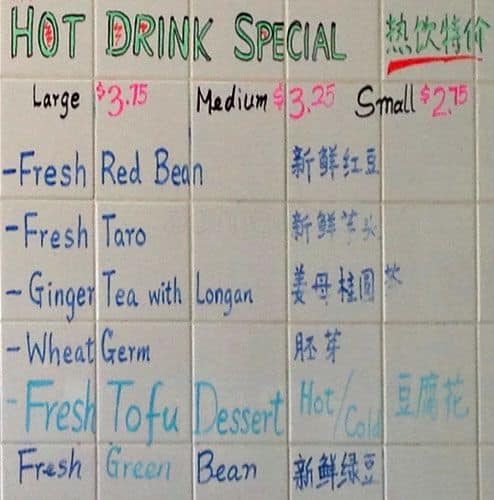 HOT DRINK SPECIAL 热饮特价
Large $3.75 Medium $3.25 Small $2.75
-Fresh Red Bean 新鲜红豆
-Fresh Taro 新鲜芋头
-Ginger Tea with Longan 姜母桂圆茶
-Wheat Germ 胚芽
-Fresh Tofu Dessert Hot/Cold 豆腐花
Fresh Green Bean 新鲜绿豆